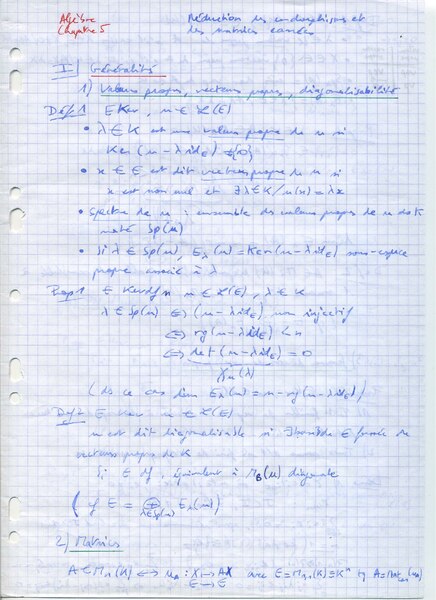 Algèbre
Chapitre 5
Réduction des endomorphismes et
des matrices carrées
I) Généralités
1) Valeurs propres, vecteurs propres, diagonalisabilité
Déf 1 E Kev, u ∈ L(E)
• λ ∈ K est une valeur propre de u si
Ker(u-λid_E) ≠ {0}
• x ∈ E est dit vecteur propre de u si
x est non nul et ∃λ∈K/u(x)=λx
• Spectre de u : ensemble des valeurs propres de u ds K
noté Sp(u)
• Si λ ∈ Sp(u), E_λ(u)=Ker(u-λid_E) sous-espace
propre associé à λ
Prop 1 E Kev df n u ∈ L(E), λ ∈ K
λ ∈ Sp(u) ⇔ (u-λid_E) non injectif
⇔ rg(u-λid_E) < n
⇔ det(u-λid_E) = 0
χ_u(λ)
(ds ce cas dim E_λ(u) = n-rg(u-λid_E))
Déf 2 E Kev u ∈ L(E)
u est dit diagonalisable si ∃ base de E formée de
vecteurs propres de
Si E df, équivalent à M_B(u) diagonale
E = ⊕ E_λ(u)
λ∈Sp(u)
2) Matrices
A ∈ M_n(K) ↔ u_A : X ↦ AX avec E = M_n,1(K) ≅ K^n tq A = Mat_can(u_A)
E → E